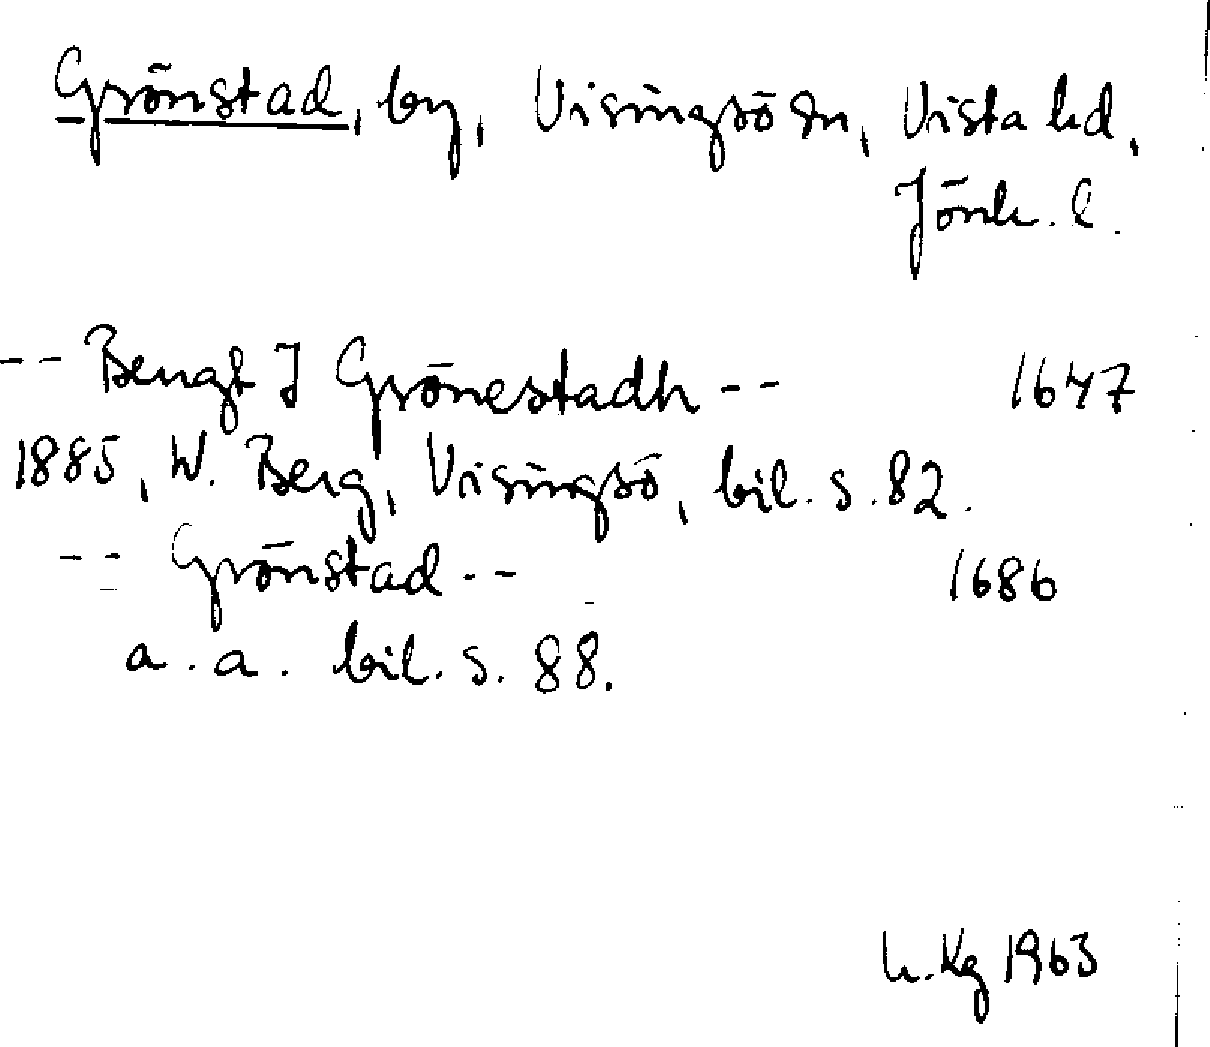 Grönstad, by, Visingsö sn, Vista hd,
Jönk. l.
-- Bengt J Grönestadh -- 1647
1885, W. Berg, Visingsö, bil. s. 82.
-- Grönstad -- 1686
a. a. bil. s. 88.
Kg 1963